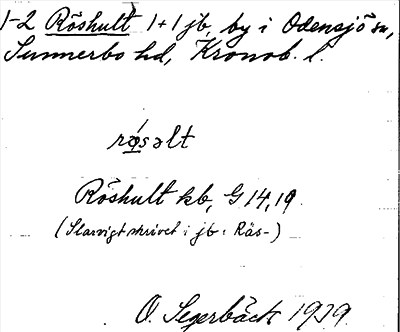 1-2 Röshult 1+1 jb, by i Odensjö sn,
Sunnerbo hd, Kronob. l.
røsəlt
Röshult kb, G 14, 19.
(Slarvigt skrivet i jb: Räs-)
O. Segerbäck 1929.